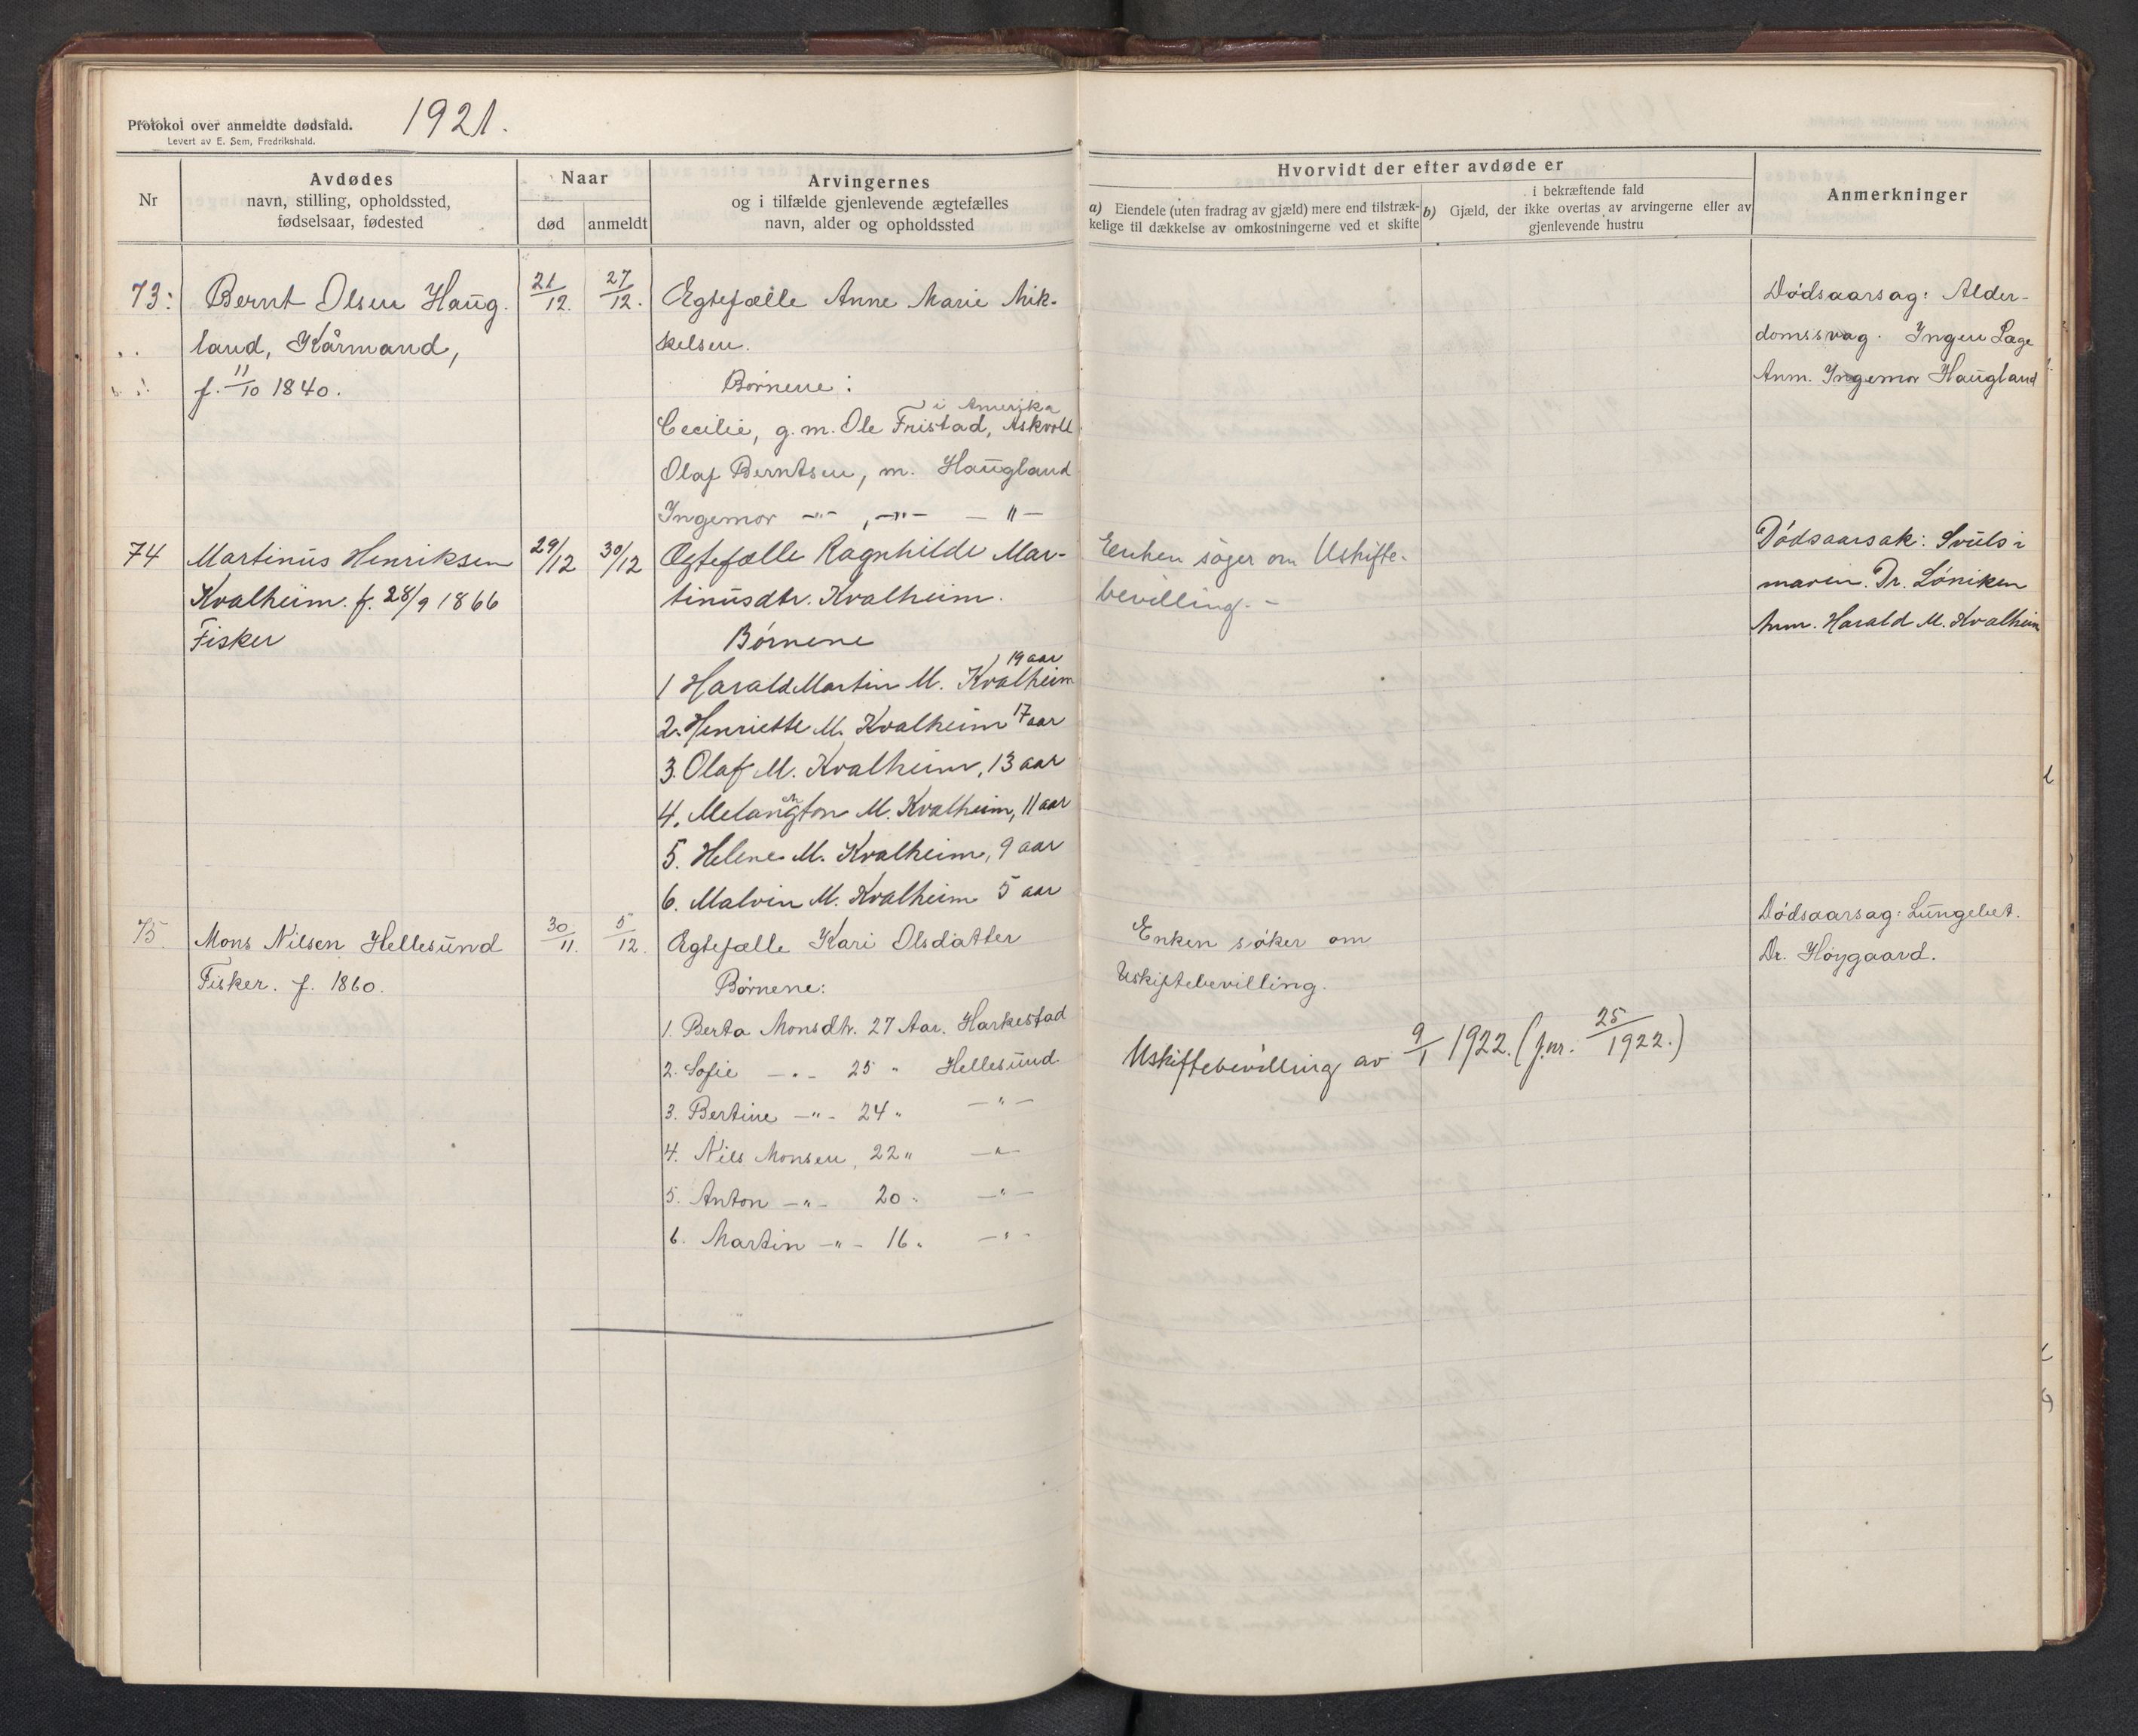 Protokol over anmeldte dødsfald. 1921.
Levert av E. Sem, Fredrikshald.
Nr
Avdødes
navn, stilling, opholdssted,
fødselsaar, fødested
Naar
død
anmeldt
Arvingernes
og i tilfælde gjenlevende ægtefælles
navn, alder og opholdssted
Hvorvidt der efter avdøde er
a) Eiendele (uten fradrag av gjæld) mere end tilstræk-
kelige til dækkelse av omkostningerne ved et skifte
i bekræftende fald
b) Gjæld, der ikke overtas av arvingerne eller av
gjenlevende hustru
Anmerkninger
73:
Bernt Olsen Haug.
land, Kårmand,
f. 11/10 1840.
21/12.
27/12.
Ægtefælle Anne Marie Mik-
kelsen.
Børnene:
i Amerika
Cecilie, g. m. Ole Fristad, Askvoll
Olaf Berntsen, m. Haugland
Ingemor -"- , -"- - " -
Dødsaarsag: Alder-
domssvag. Ingen Læge
Anm. Ingemor Haugland
74
Martinus Henriksen
Kvalheim. f. 28/9 1866
Fisker
29/12
30/12
Ægtefælle Ragnhilde Mar-
tinusdtr. Kvalheim.
Børnene
19 aar
1 Harald Martin M. Kvalheim
2. Henriette M. Kvalheim 17 aar
3. Olaf M. Kvalheim, 13 aar
4. Melangton M. Kvalheim, 11 aar
5. Helene M. Kvalheim, 9 aar
6. Malvin M. Kvalheim 5 aar
Enken søger om Uskifte-
bevilling. -
Dødsaarsak: Svuls i
maven. Dr. Løniken
Anm. Harald M. Kvalheim
75.
Mons Nilsen Hellesund
Fisker. f. 1860.
30/11.
5/12.
Ægtefælle Kari Olsdatter
Børnene:
1. Berta Monsdtr. 27 Aar. Harkestad
2. Sofie - " - 25 " Hellesund
3. Bertine - " - 24 " - " -
4. Nils Monsen, 22 " - " -
5. Anton - " - 20 " - " -
6. Martin - " - 16 " - " -
Enken søker om
Uskiftebevilling.
Uskiftebevilling av 9/1 1922. (j.nr. 25/1922.)
Dødsaarsag: Lungebet.
Dr. Høygaard.